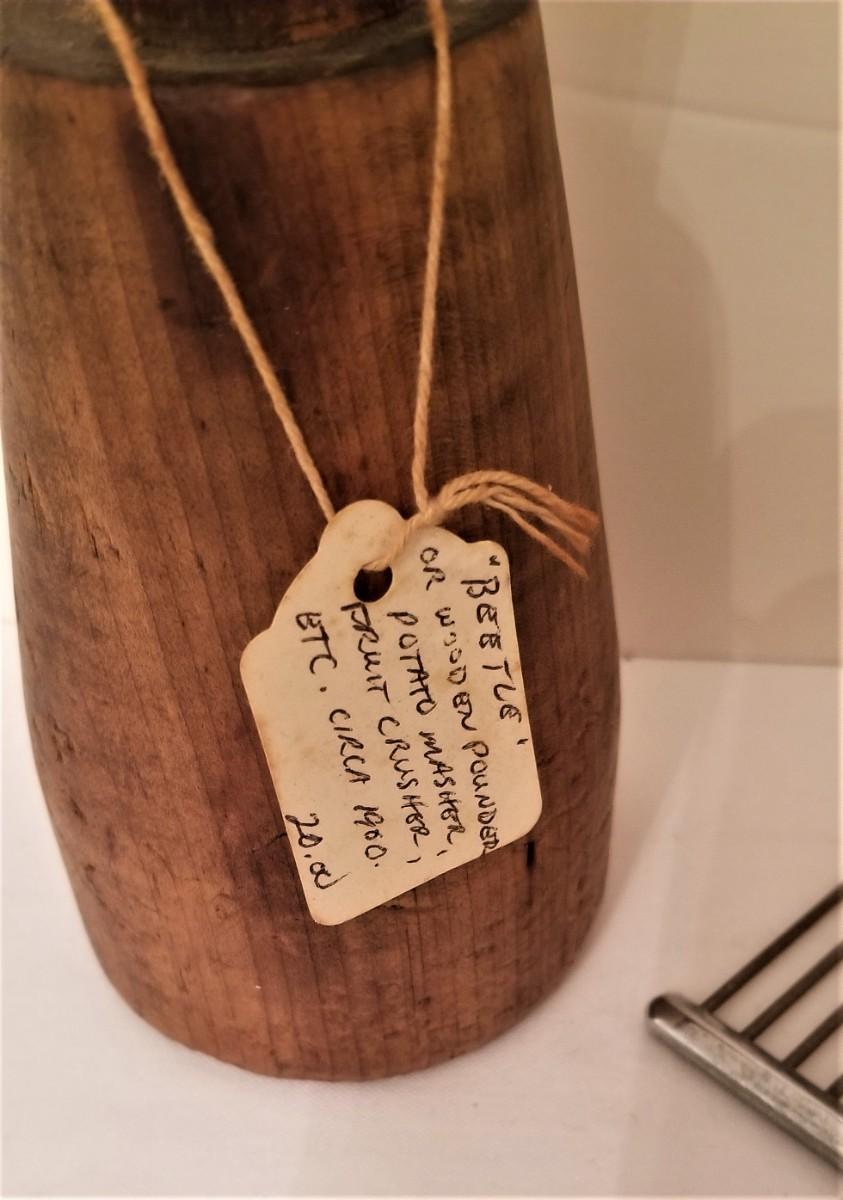 "BEETLE'
OR WOODEN POUNDER
POTATO MASHER,
FRUIT CRUSHER,
ETC. CIRCA 1900.
20.00